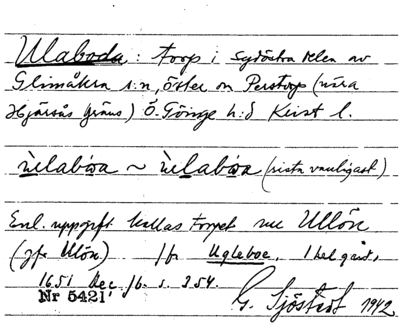 Ulaboda: torp i sydöstra delen av
Glimåkra s:n, öster om Perstorp (nära
Hjärsås gräns) Ö. Göinge h:d Krist l.
ùlabóa ~ ùlabòa (sista vanligast)
Enl. uppgift kallas torpet nu Ullön
(jfr Ulön) Ugleboe, 1 hel gård,
1651 Dec. jb. s. 354.
Nr 5421
G. Sjöstedt 1942.